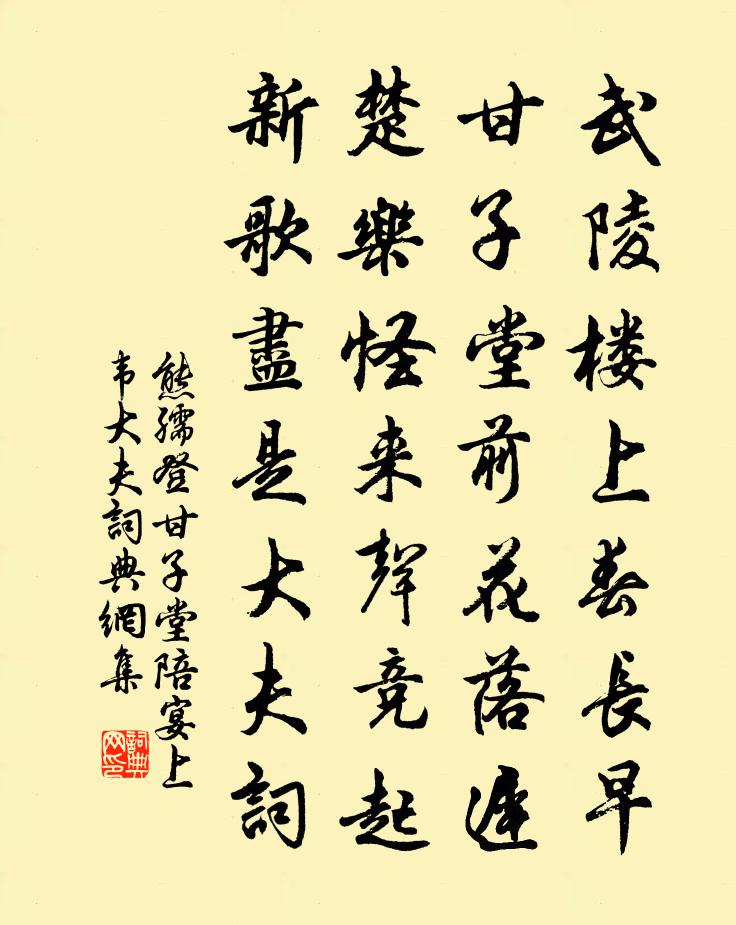 武陵楼上春長早
甘子堂前花落遲
楚樂怪来聲竞起
新歌盡是大夫詞
熊孺登甘子堂陪宴上
韦大夫詞典網集
詞典
网印